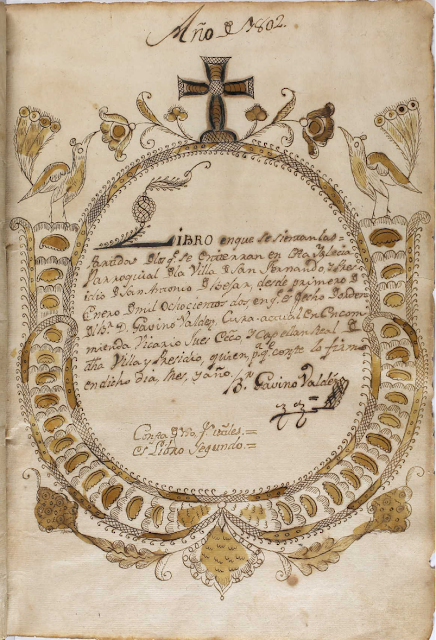 Año D 1802.
LIBRO enque se sientan las
Partidas Dlos q.e se entierran en esta Yglecia
Parroquial Dla Villa D San Fernando y Presi
dio D San Antonio D Bejar, desde primero D
Enero D mil ochocientos dos, en q.e
D. Gavino Valdez, Cura actual En Encom
mienda Vicario Jues Ecco. y Capellan Real D
dha Villa y Presidio, quien, p.a q.e conste lo firmo
en dicho dia, mes, y año.
B.r Gavino Valdez
Consta D
el Libro Segundo.=